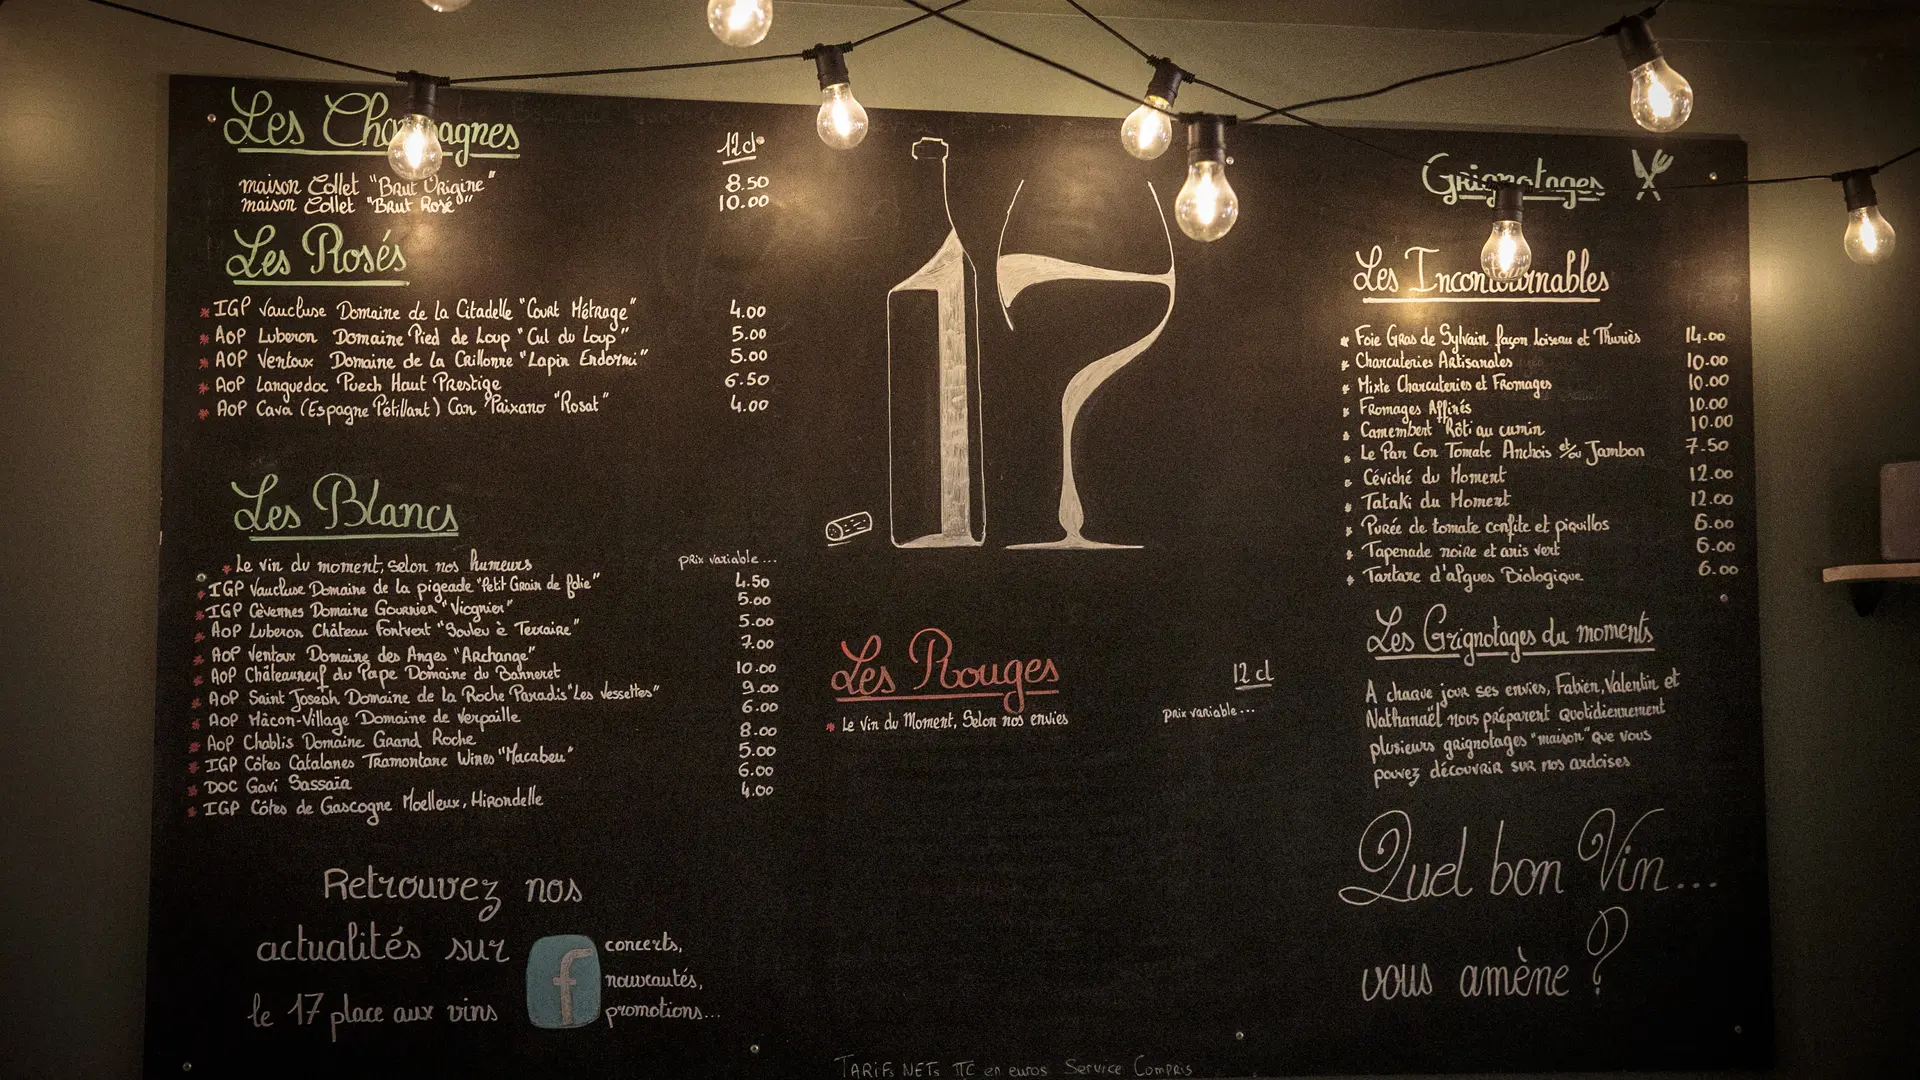 Les Champagnes 12cl
maison Collet "Brut Origine" 8.50
maison Collet "Brut Rosé" 10.00
Les Rosés
* IGP Vaucluse Domaine de la Citadelle "Court Métrage" 4.00
* AOP Luberon Domaine Pied de Loup "Cul du Loup" 5.00
* AOP Ventoux Domaine de la Crillonne "Lapin Endormi" 5.00
* AOP Languedoc Puech Haut Prestige 6.50
* AOP Cava (Espagne Pétillant) Can Paixano "Rosat" 4.00
Les Blancs
* Le vin du moment, selon nos humeurs prix variable...
* IGP Vaucluse Domaine de la pigeade "Petit Grain de folie" 4.50
* IGP Cévennes Domaine Gournier "Viognier" 5.00
* AOP Luberon Château Fontvert "Soulèu è Terraire" 5.00
* AOP Ventoux Domaine des Anges "Archange" 7.00
* AOP Châteauneuf du Pape Domaine du Banneret 10.00
* AOP Saint Joseph Domaine de la Roche Paradis "Les Vessettes" 9.00
* AOP Mâcon-Village Domaine de Verpaille 6.00
* AOP Chablis Domaine Grand Roche 8.00
* IGP Côtes Catalanes Tramontane Wines "Macabeu" 5.00
* DOC Gavi Sassaïa 6.00
* IGP Côtes de Gascogne Moelleux, Hirondelle 4.00
Retrouvez nos
actualités sur
le 17 place aux vins
f
concerts,
nouveautés,
promotions...
17
Les Rouges 12 cl
* Le Vin du Moment, Selon nos envies prix variable...
Grignotages
Les Incontournables
* Foie Gras de Sylvain façon Loiseau et Thuriès 14.00
* Charcuteries Artisanales 10.00
* Mixte Charcuteries et Fromages 10.00
* Fromages Affinés 10.00
* Camembert Rôti au cumin 10.00
* Le Pan Con Tomate Anchois et/ou Jambon 7.50
* Céviché du Moment 12.00
* Tataki du Moment 12.00
* Purée de tomate confite et piquillos 6.00
* Tapenade noire et anis vert 6.00
* Tartare d'algues Biologique 6.00
Les Grignotages du moments
A chaque jour ses envies, Fabien, Valentin et
Nathanaël nous préparent quotidiennement
plusieurs grignotages "maison" que vous
pouvez découvrir sur nos ardoises
Quel bon Vin...
vous amène ?
TARIFS NETS TTC en euros Service Compris